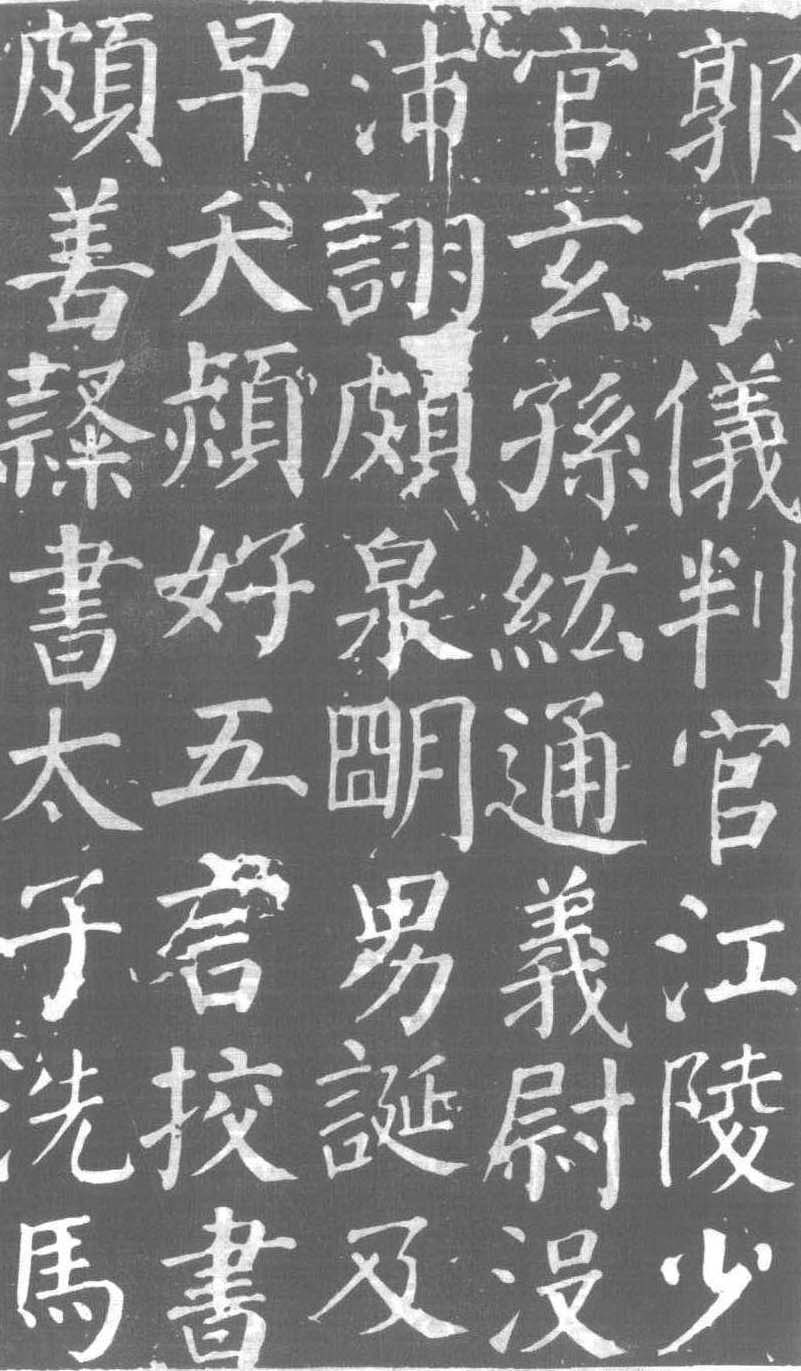 郭子儀判官江陵少
官玄孫紘通義尉没
沛詡頗泉明男誕及
早夭熲好五言挍書
頗善隸書太子洗馬